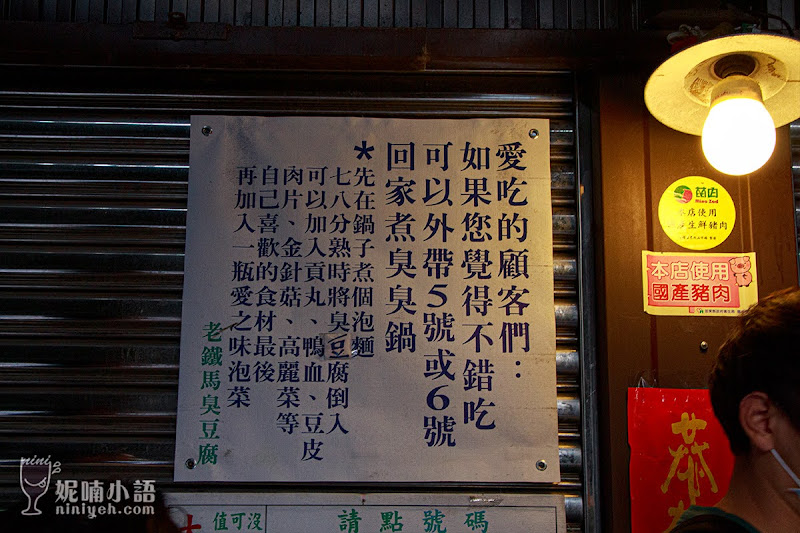 愛吃的顧客們：
如果您覺得不錯吃
可以外帶5號或6號
回家煮臭臭鍋
*先在鍋子煮個泡麵
七八分熟時將臭豆腐倒入
可以加入貢丸、鴨血、豆皮
肉片、金針菇、高麗菜等
自己喜歡的食材最後
再加入一瓶愛之味泡菜
老鐵馬臭豆腐
值可沒
請點號碼
本店使用
生鮮豬肉
本店使用
國產豬肉
恭
nini
妮喃小語
niniyeh.com